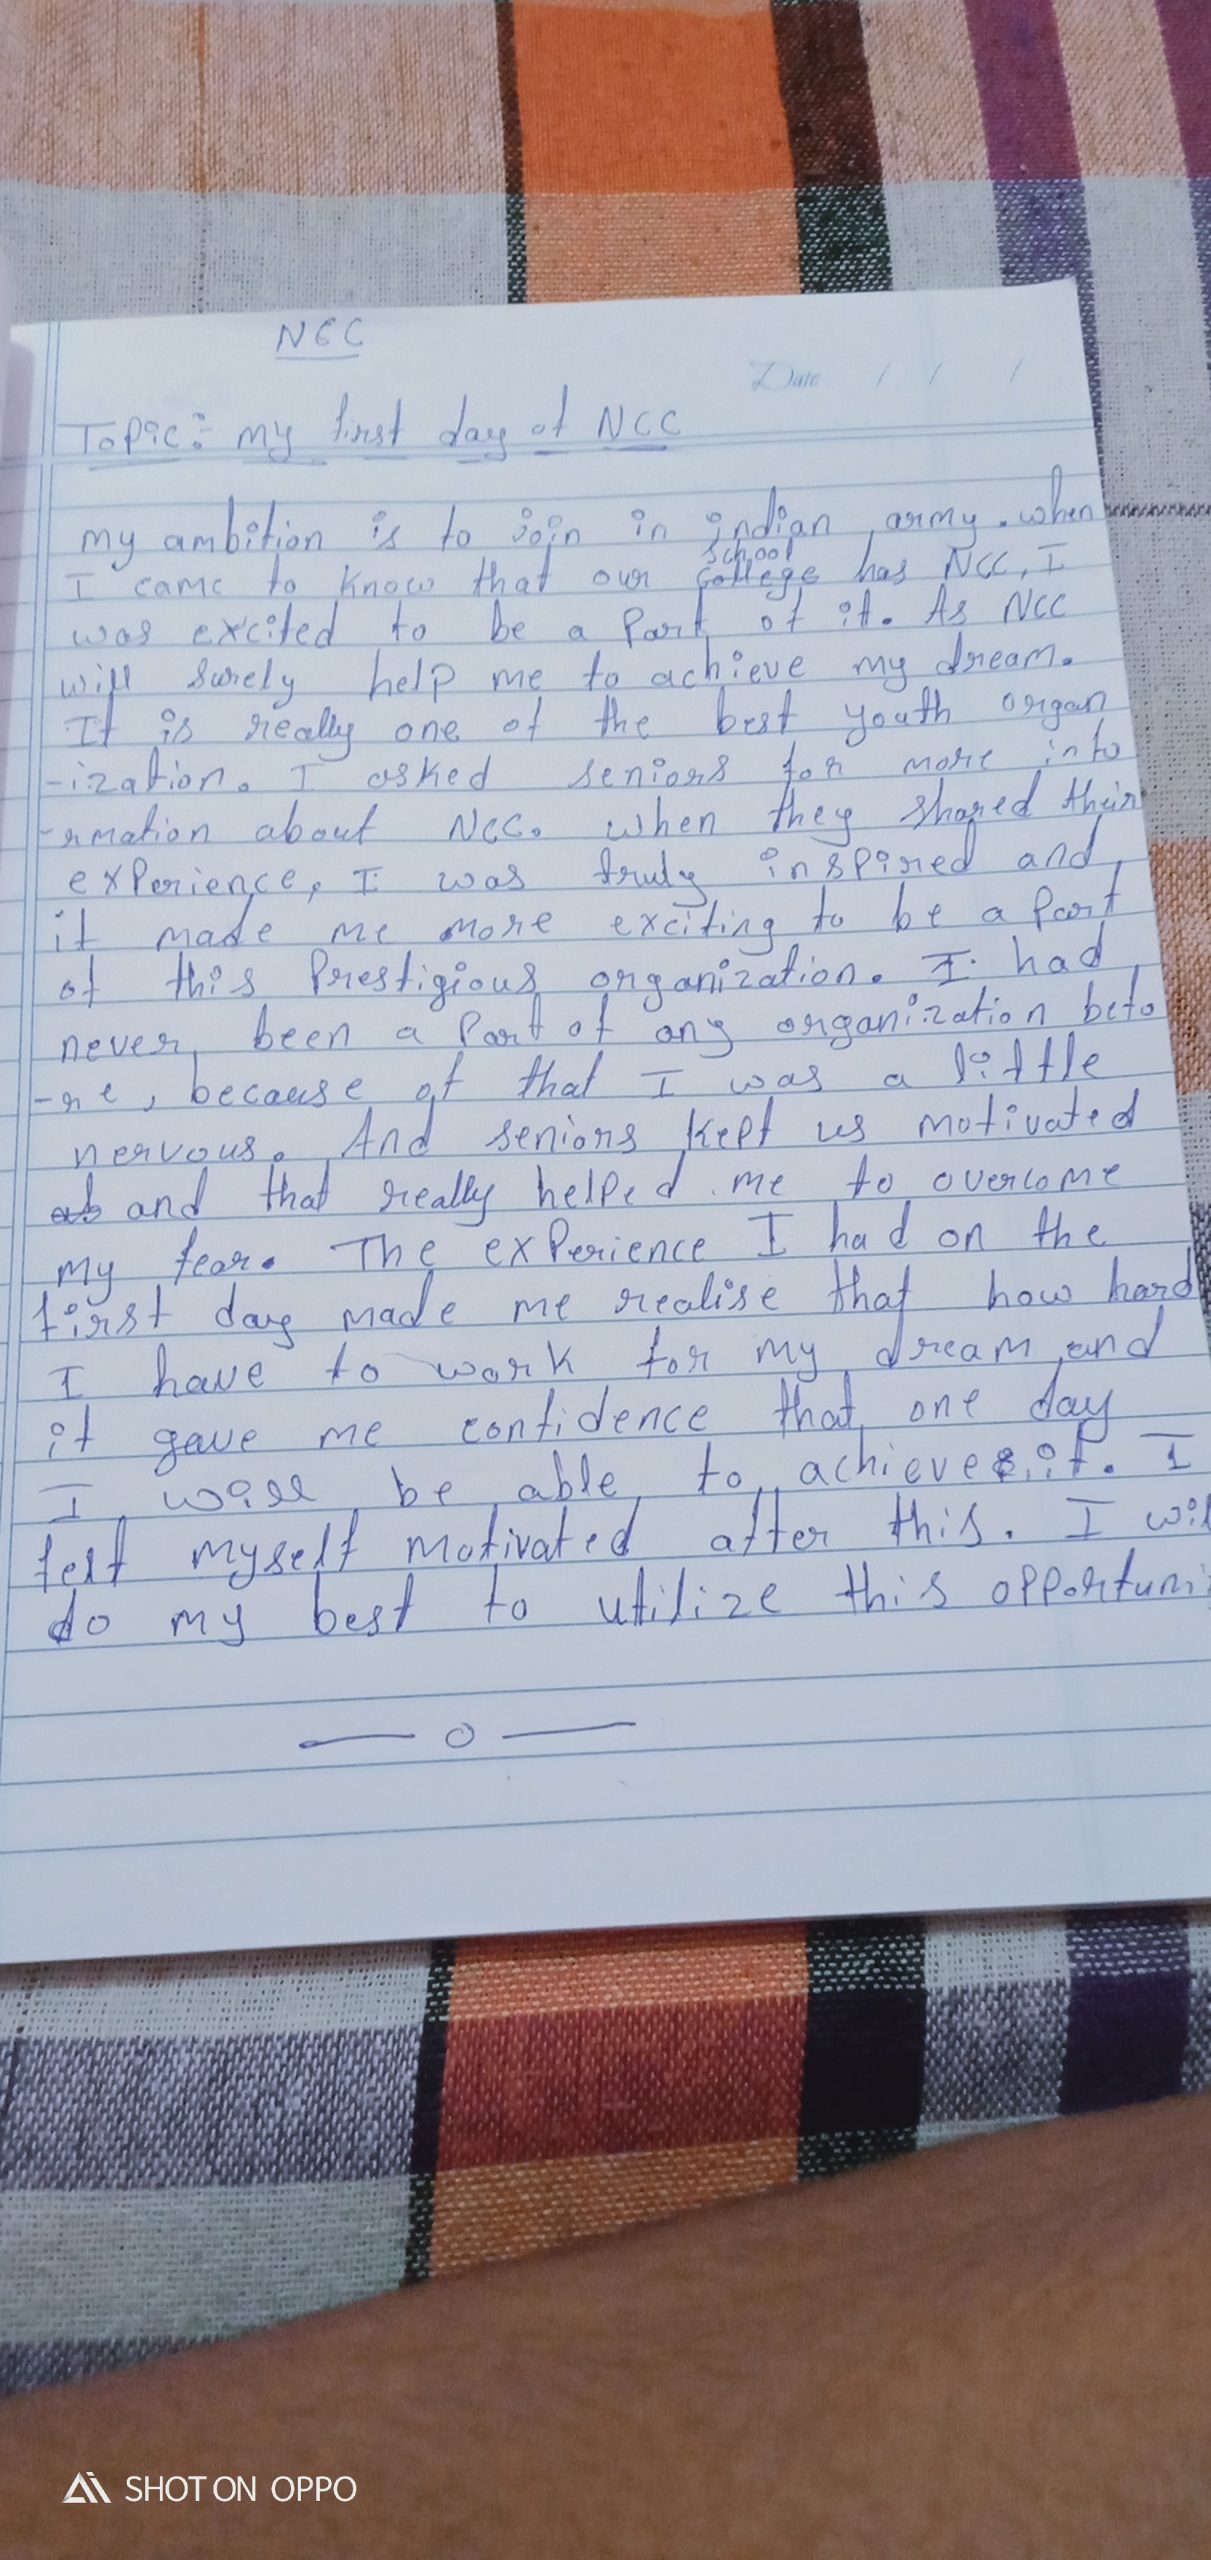 NCC
Date / / /
Topic: my first day of NCC
my ambition is to join in indian army. when
school
I came to know that our college has NCC, I
was excited to be a part of it. As NCC
will surely help me to achieve my dream.
It is really one of the best youth organ
-ization. I asked seniors for more info
-rmation about NCC. when they shared their
experience, I was truly inspired and
it made me more exciting to be a part
of this Prestigious organization. I had
never been a part of any organization befo
-re, because of that I was a little
nervous. And seniors kept us motivated
and that really helped me to overcome
my fear. The experience I had on the
first day made me realise that how hard
I have to work for my dream and
it gave me confidence that one day
I will be able to achieve it. I
felt myself motivated after this. I wil
do my best to utilize this opportuni
SHOT ON OPPO